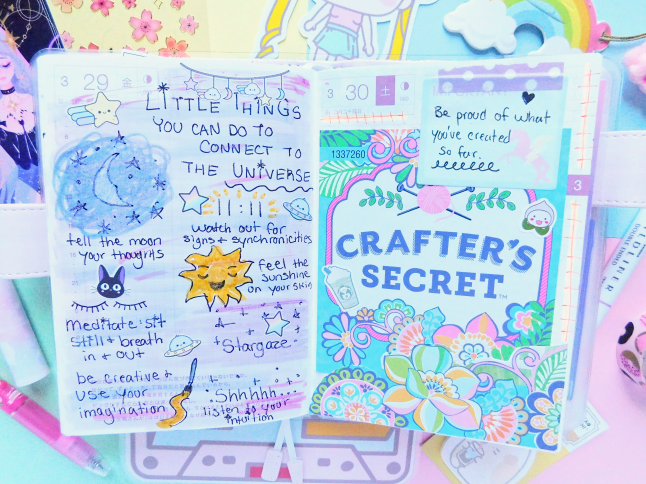 3 29 金
LITTLE THINGS
YOU CAN DO TO
CONNECT TO
THE UNIVERSE
11:11
watch out for
signs + synchronicities
tell the moon
your thoughts
feel the
sunshine
on your skin
meditate: sit
still + breath
in + out
"Stargaze"
be creative +
use your
imagination
Shhhhh...
listen to your
intuition
3 30 土
Be proud of what
you've created
so far.
1337260
3
CRAFTER'S
SECRET™